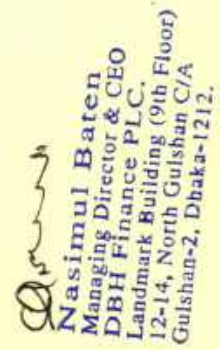 Nasimul Baten
Managing Director & CEO
DBH Finance PLC.
Landmark Building (9th Floor)
12-14, North Gulshan C/A
Gulshan-2, Dhaka-1212.